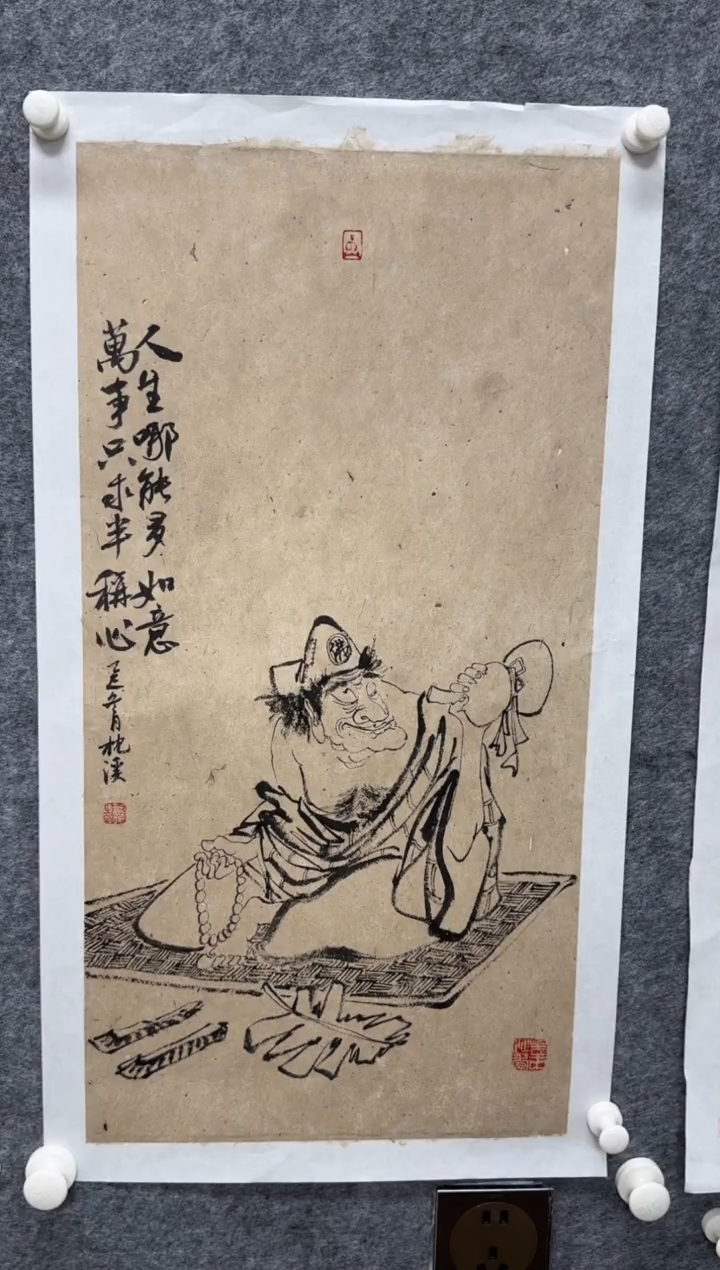 人生哪能多如意
萬事只求半稱心
枕溪
佛